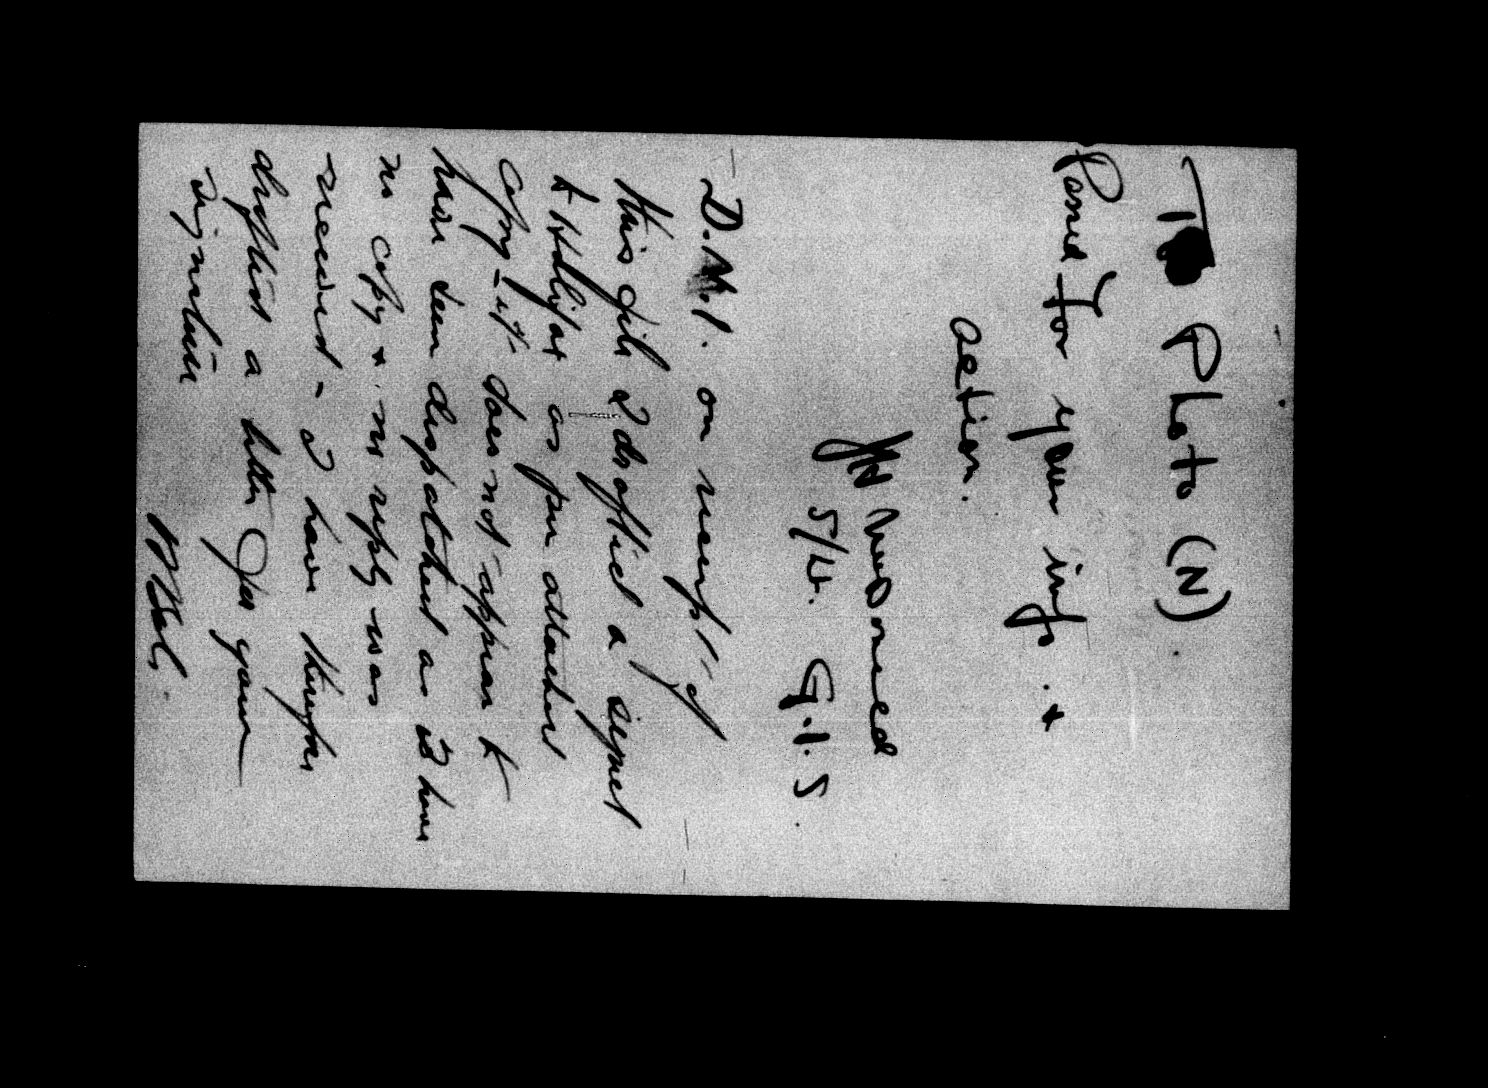 To Photo (N)
Passed for your info. +
action.
5/4. G.I.S.
D.M.I. on receipt of
this file I drafted a signal
to Halifax as per attached
copy - it does not appear to
have been despatched as I have
no copy + no reply was
received - I have therefore
drafted a letter for your
signature